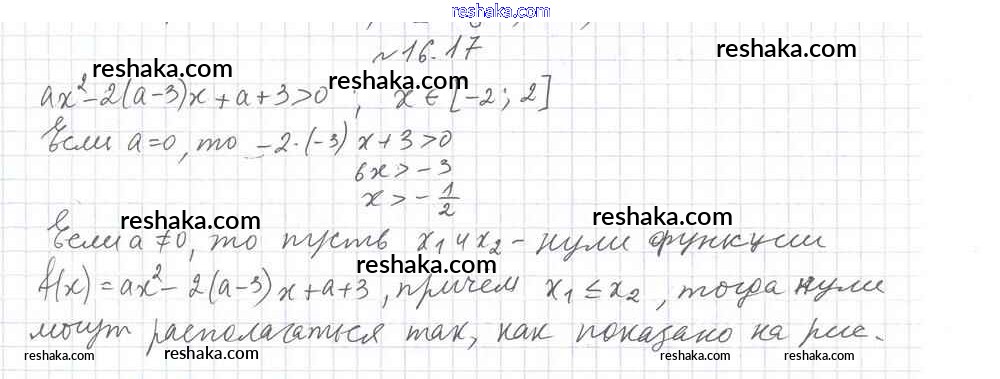 reshaka.com
№16.17
reshaka.com
reshaka.com
reshaka.com
ax²-2(a-3)x+a+3>0, x∈[-2; 2]
Если a=0, то -2·(-3)x+3>0
6x>-3
x>-1/2
reshaka.com
reshaka.com
Если a≠0, то пусть x₁ и x₂ - нули функции
reshaka.com
f(x)=ax²-2(a-3)x+a+3, причем x₁≤x₂, тогда нули
могут располагаться так, как показано на рис.
reshaka.com
reshaka.com
reshaka.com
reshaka.com
reshaka.com